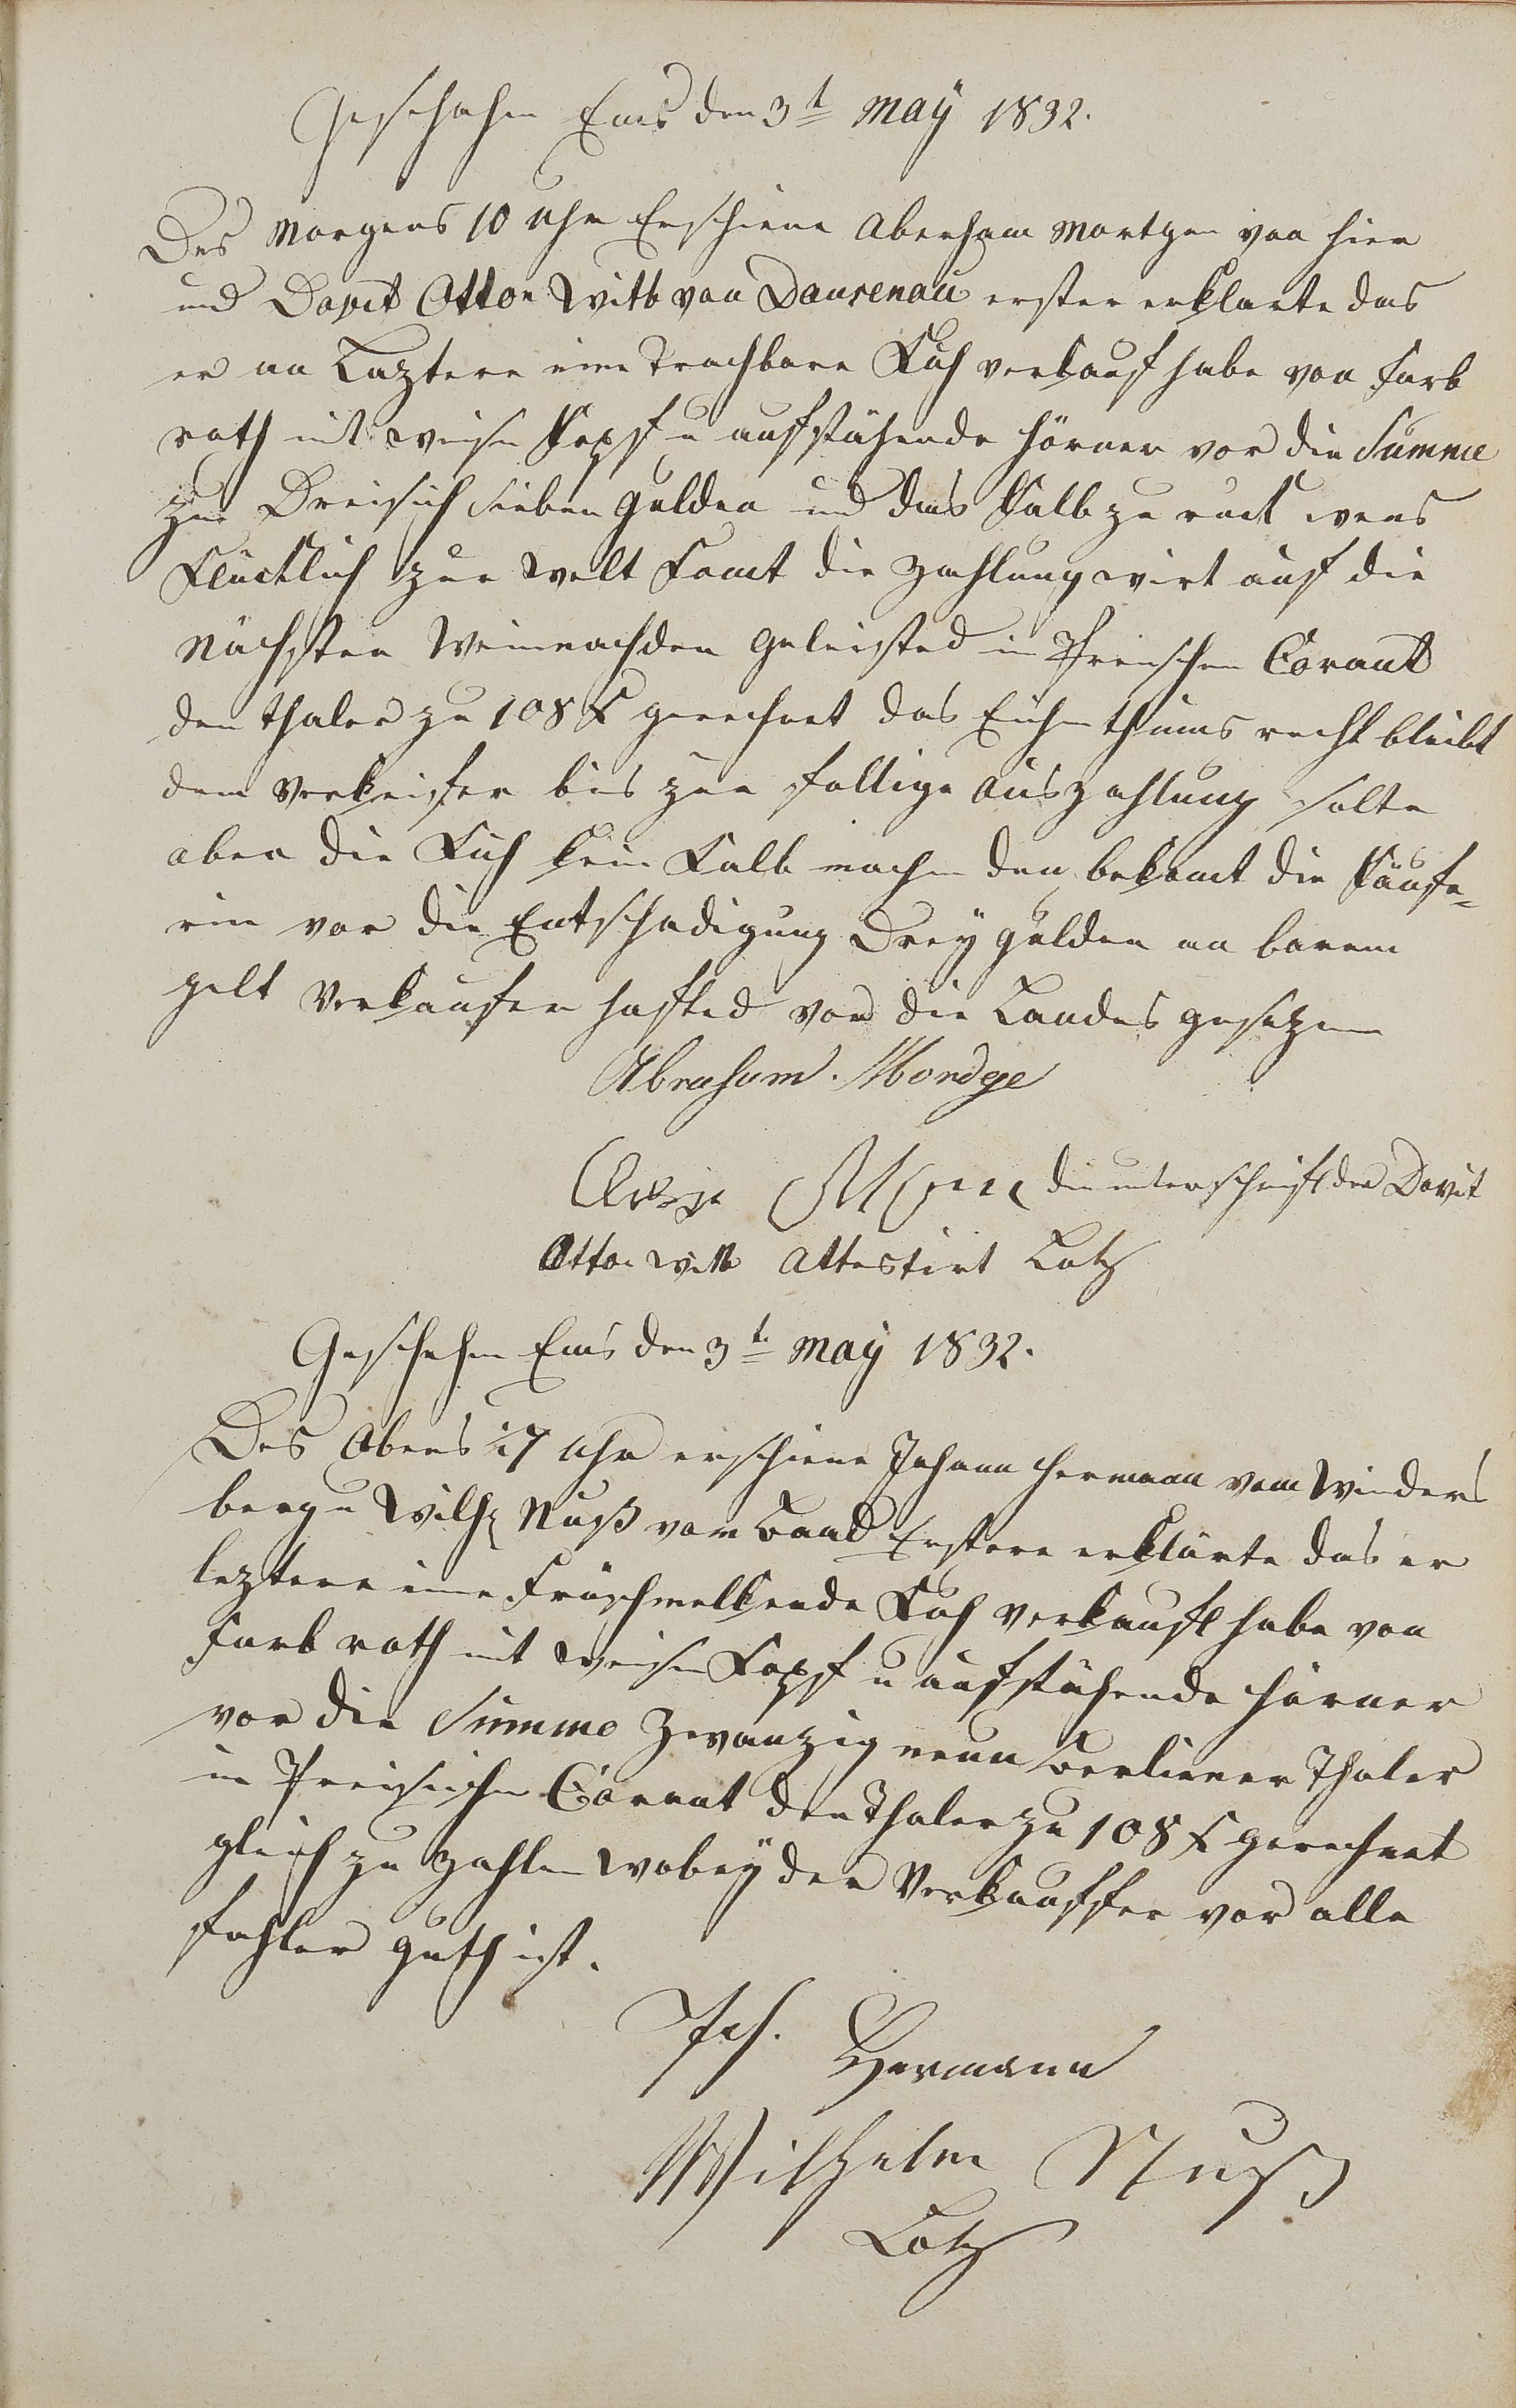 Geschehen Ems den 3t May 1832.
Des Morgens 10 Uhr Erschiene Aberham Mortgen von hier
und Davit Otto Witb von Dausenau erster erklarte das
er an Laztere eine Trachbare Kuh verkauf habe von farb
roth mit weisen Kopf u aufstähende Hörner vor die Summe
zu Dreisich sieben gulden und das Kalb zu ruck wens
Klücklich zur Welt Komt die Zahlung wirt auf die
Nächsten Weinnachden geleisted in Preischen Corant
den thaler zu 108 x gerechnet das Eichenthums recht bleibt
dem Verkeifer bis zur follige Auszahlung solte
aber die Kuh kein Kalb machen den bekomt die Käufe-
rin vor die Entschadigung Drey gulden an barem
gelt Verkaufer hafted vor die Landes gesezen
Abraham. Mordge
die unterschrift der Davit
Otto Witb Attestirt Lotz
Geschehen Ems den 3t May 1832.
Des Abens 17 Uhr erschiene Johann Hermann vom Winders
berg u Wilh Nuß vom Baad Erstere erklärte das er
leztere eine Früschmelkende Kuh verkauft habe von
Farb roth mit weisen Kopf u aufstähende Hörner
vor die Summe Zwanzig neun Berliener Thaler
in Preisischen Corant den Thaler zu 108 x gerechnet
gleich zu zahlen wobey der Verkauffer vor alle
fehler guth ist.
Joh. Hermann
Wilhelm Nuß
Lotz